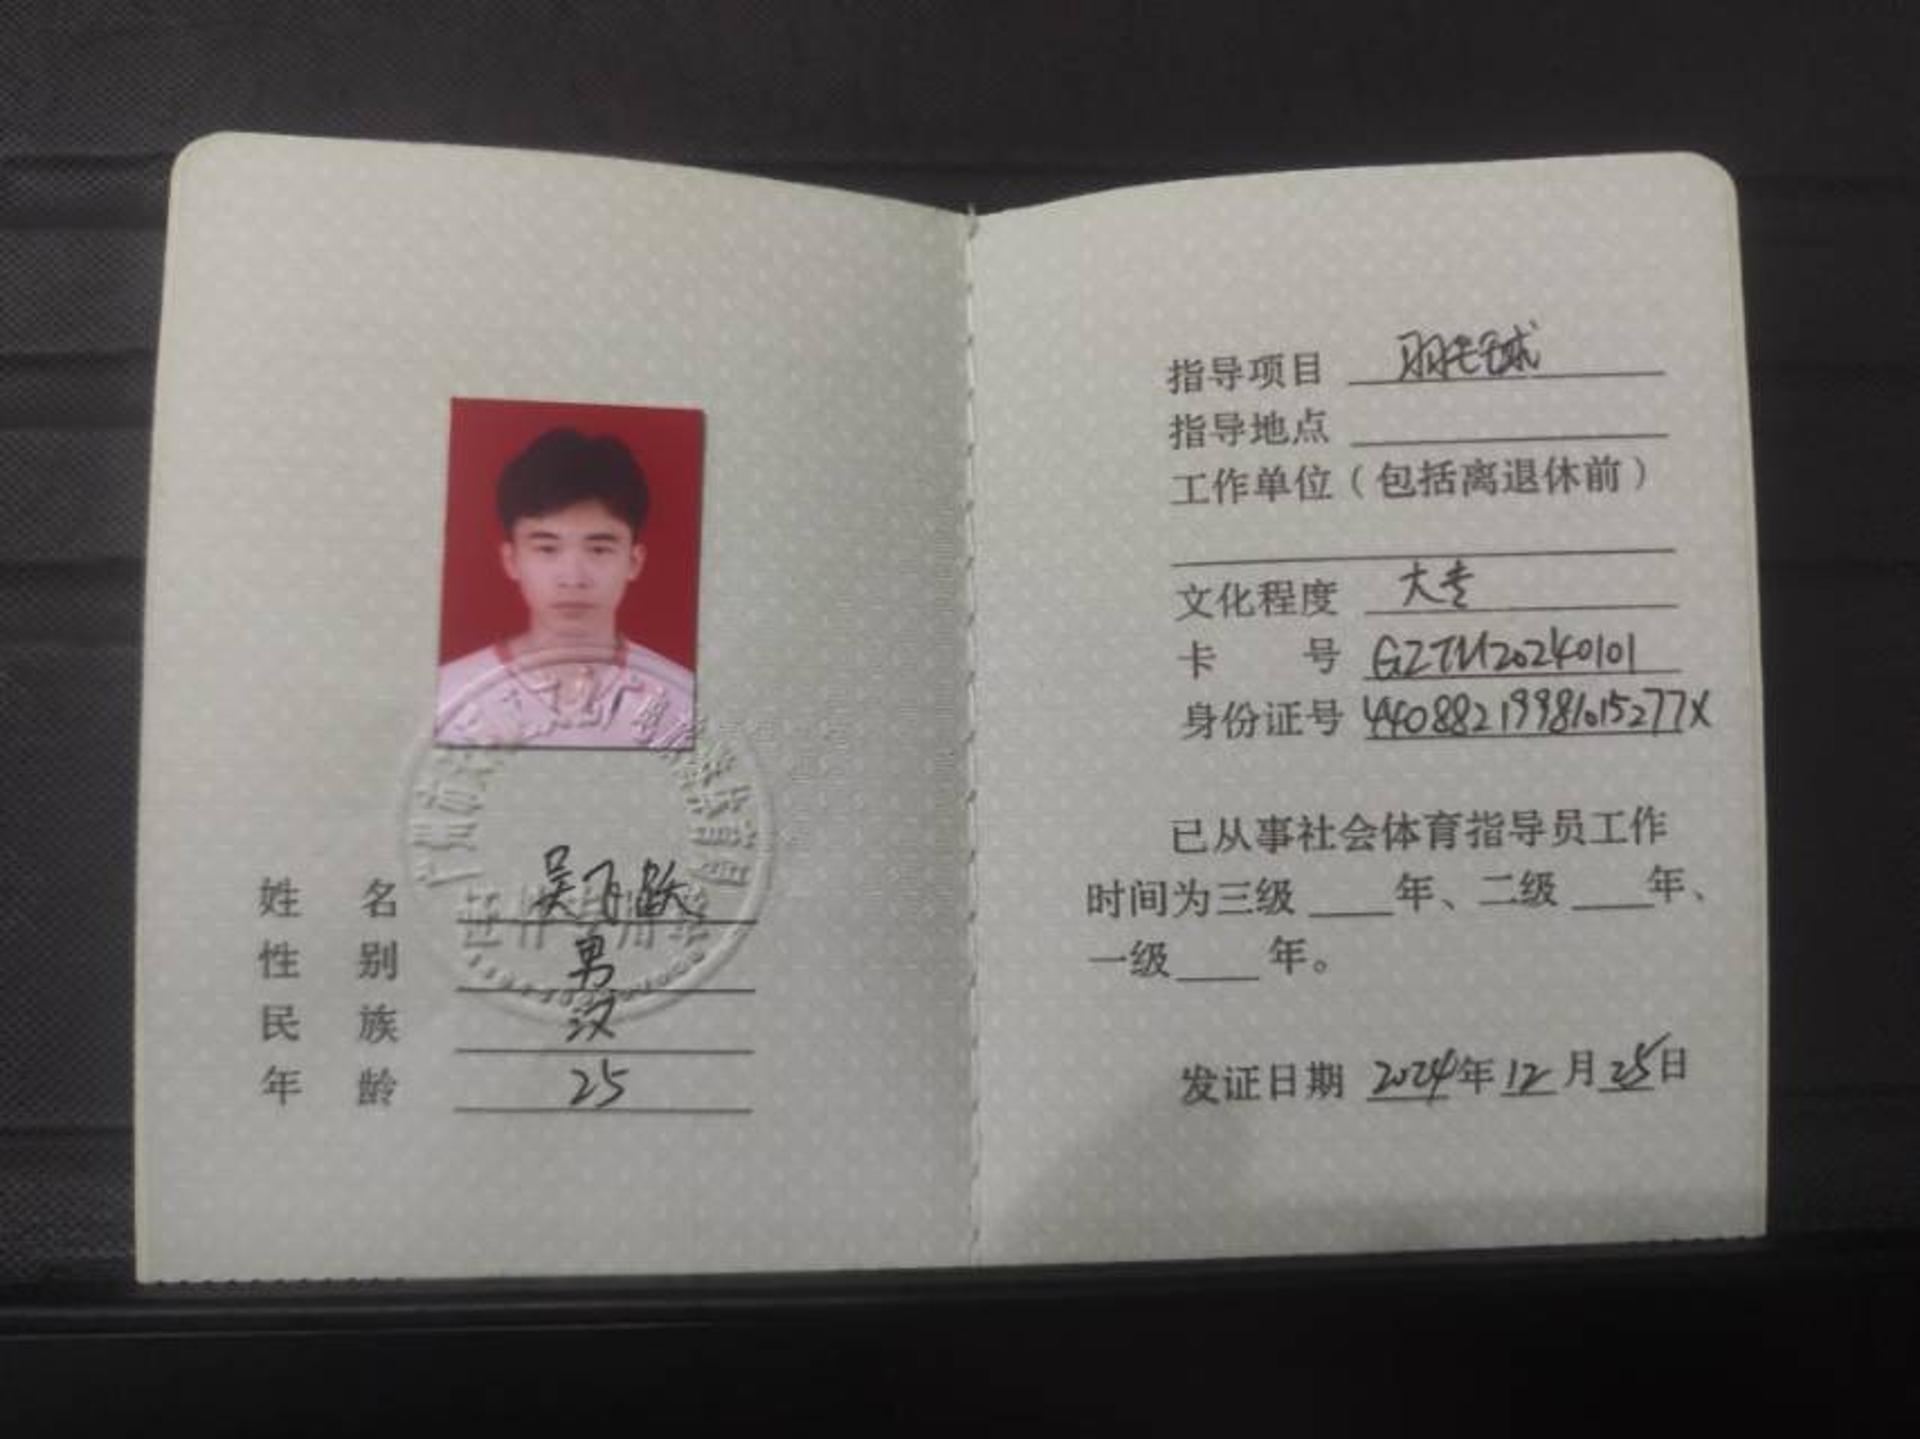 姓 名 吴飞跃
性 别 男
民 族 汉
年 龄 25
指导项目 羽毛球
指导地点
工作单位（包括离退休前）
文化程度 大专
卡 号 GZTM20240101
身份证号 44088219981015277X
已从事社会体育指导员工作
时间为三级____年、二级____年、
一级____年。
发证日期 2024年12月25日